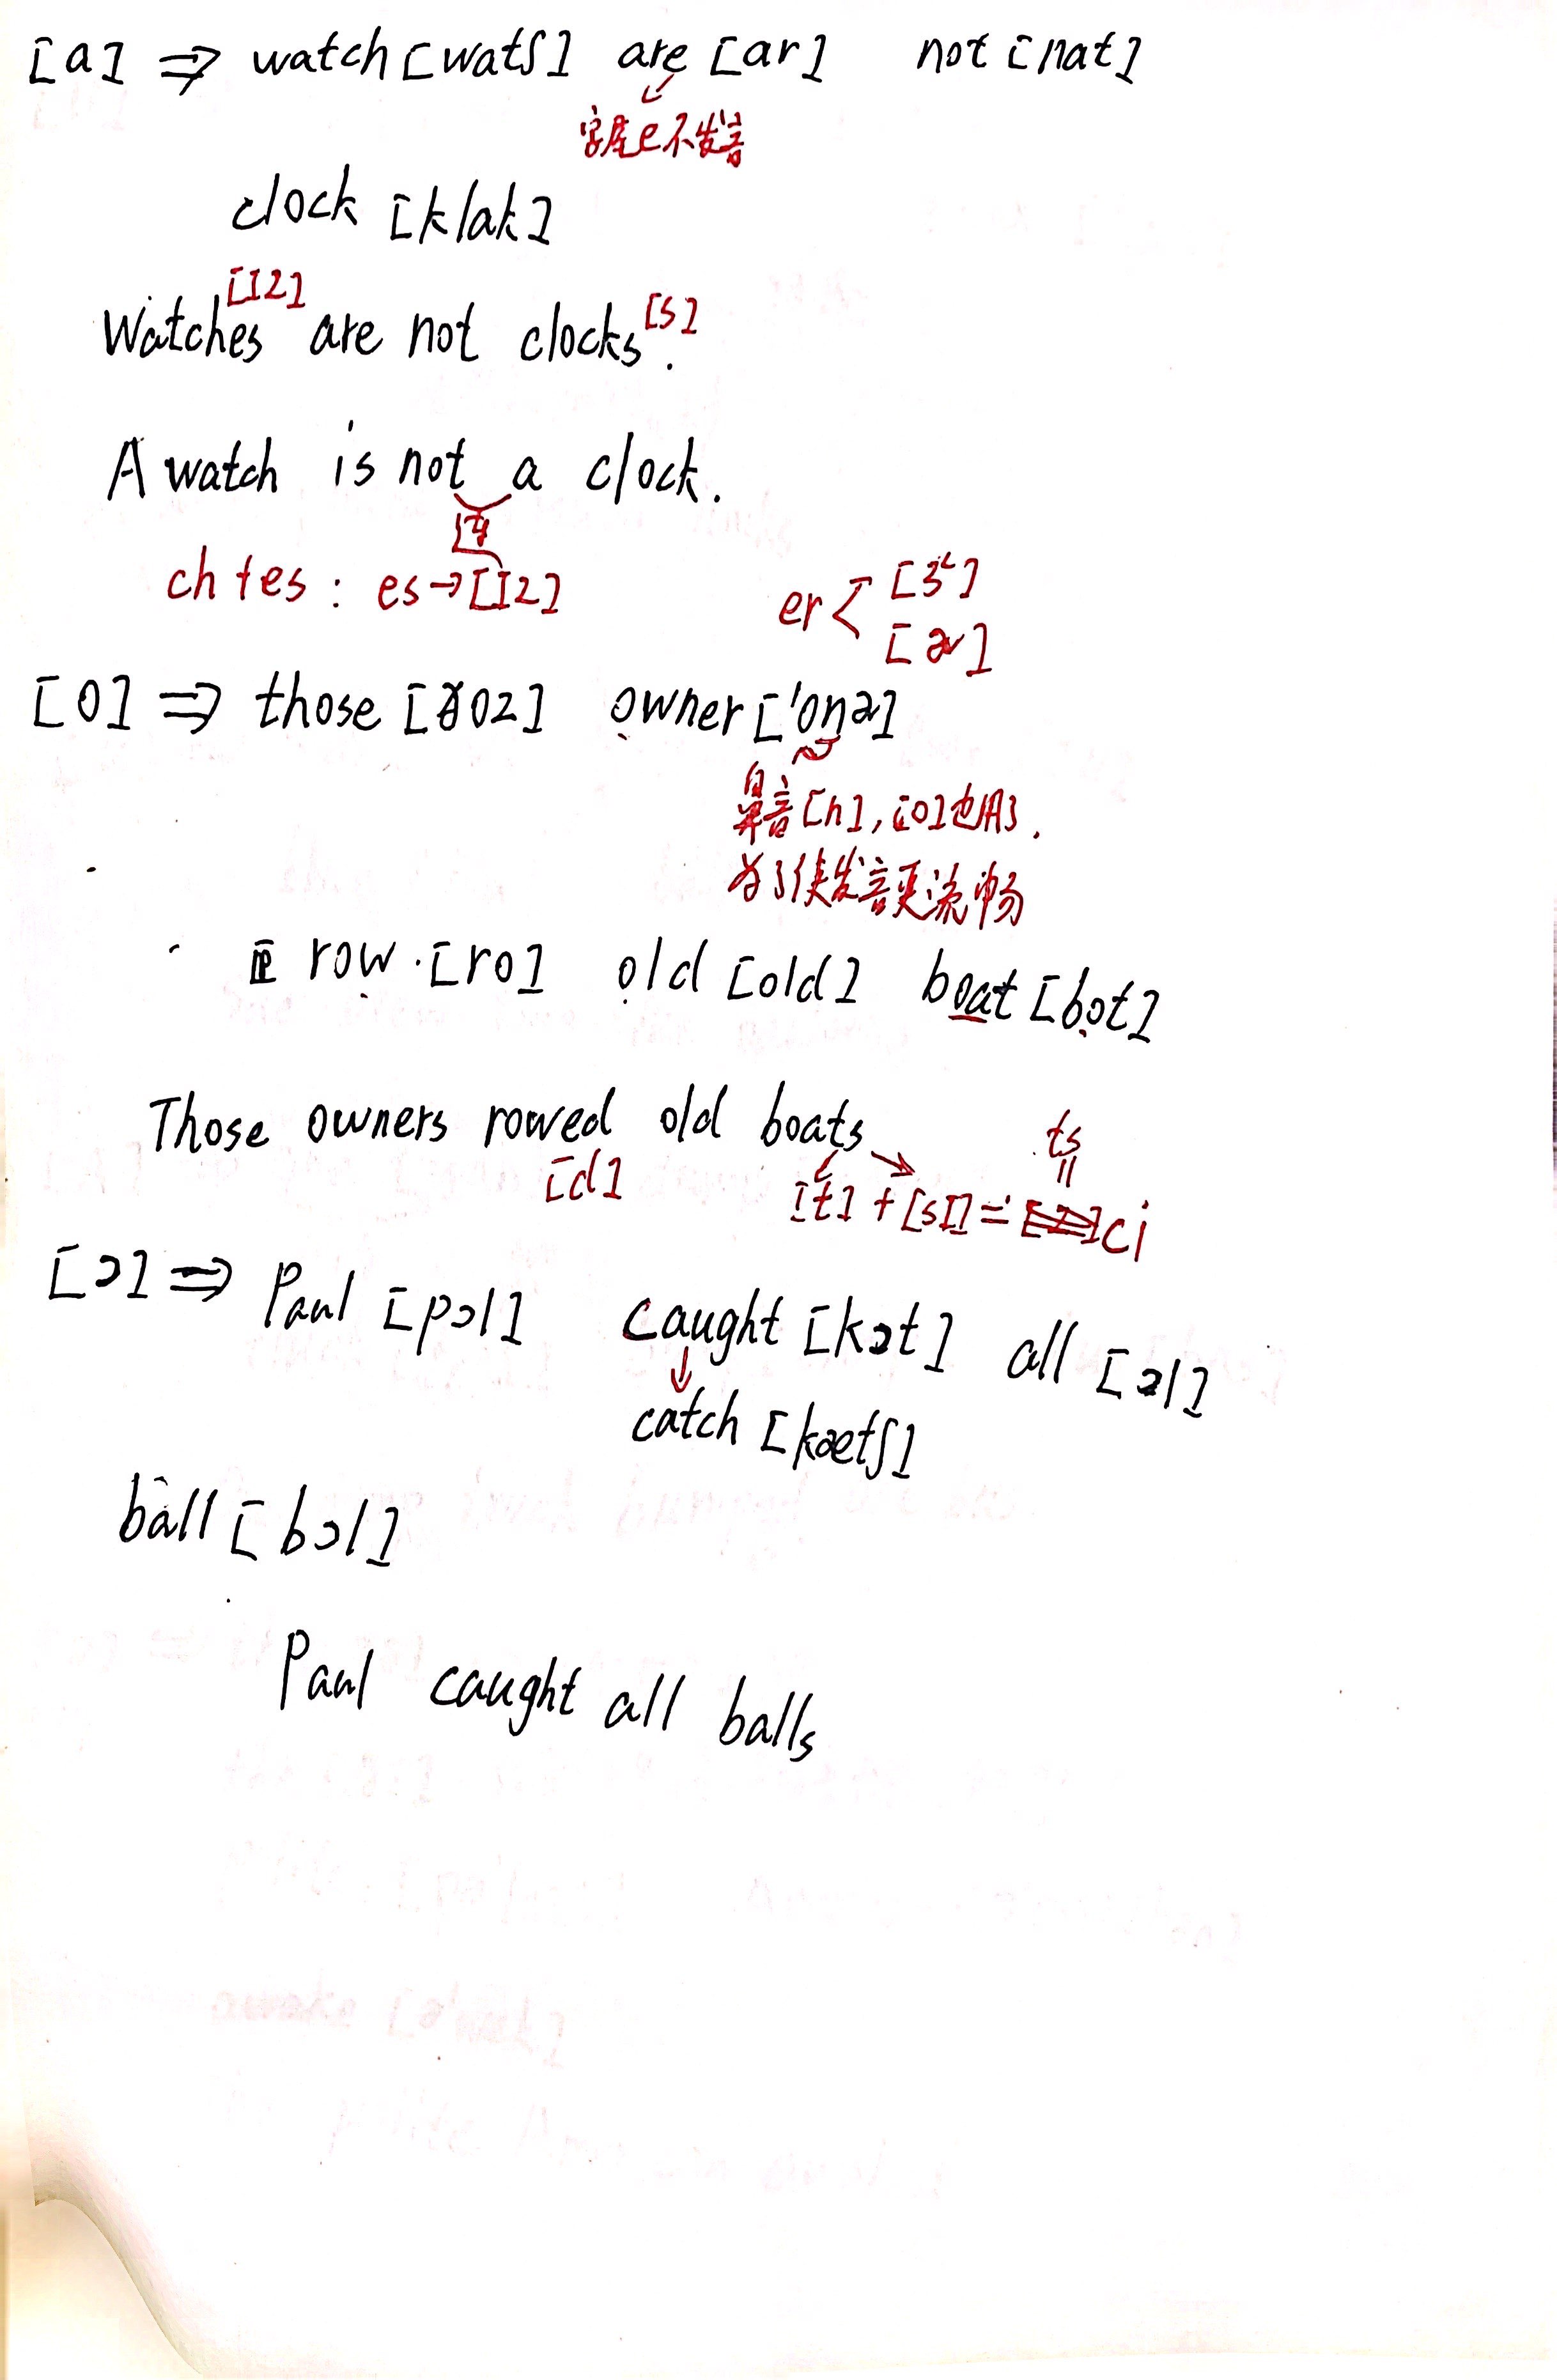 [a] ⇒ watch [watʃ] are [ar] not [nat]
字尾e不发音
clock [klak]
[Iz] [s]
Watches are not clocks.
A watch is not a clock.
ch+es: es→[Iz] er < [ɝ] [ɚ]
[o] ⇒ those [ðoz] owner ['onɚ]
鼻音[n], [o]也用,
为了使发音更流畅
row [ro] old [old] boat [bot]
Those owners rowed old boats
ts
[d] [t] + [s] = ci
[ɔ] ⇒ Paul [pɔl] caught [kɔt] all [ɔl]
catch [kætʃ]
ball [bɔl]
Paul caught all balls